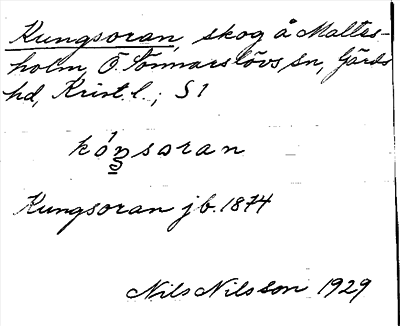 Kungsoran, skog å Maltes-
holm, Ö. Sönnarslövs sn, Gärds
hd, Krist. l.; S1
kóŋsoran
Kungsoran jb. 1874
Nils Nilsson 1929